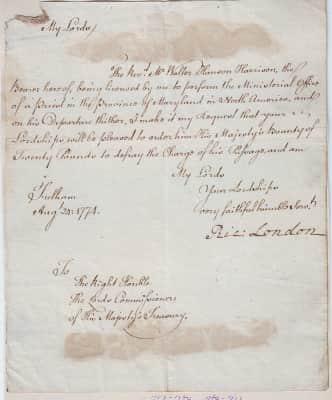 My Lords
The Revd. Mr. Walter Hanson Harrison, the
Bearer hereof, being licensed by me to perform the Ministerial Office
of a Priest in the Province of Maryland in North America, and
on his Departure thither, I make it my Request that your
Lordships will be pleased to order him His Majesty's Bounty of
Twenty Pounds to defray the Charge of his Passage, and am
My Lords
Your Lordships
very faithful humble Servt.
Ric: London
Fulham
Augt 20: 1774.
To
The Right Honble
The Lords Commissioners
of His Majesty's Treasury.